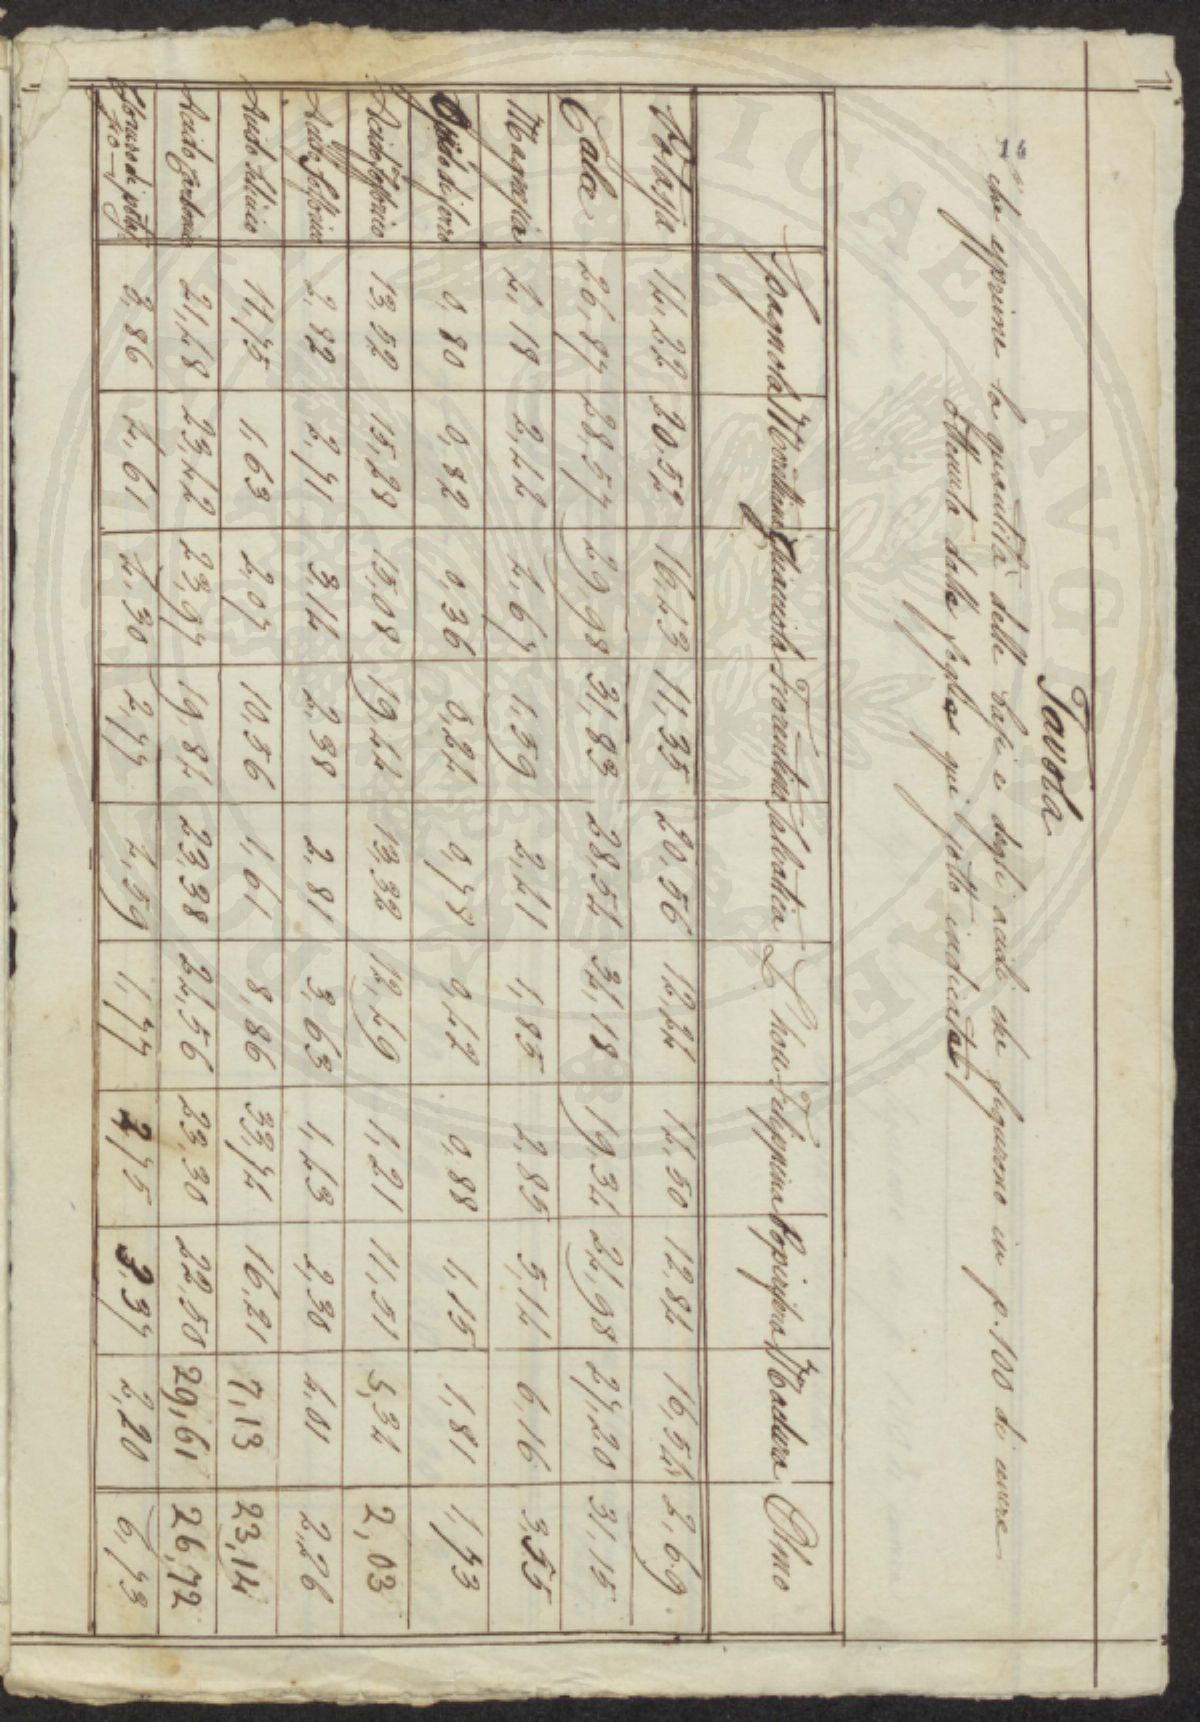 16
Tavola
che esprime la quantità delle basi e degli acidi che figurano in p. 100 di cenere
ottenuta dalle foglie qui sotto indicate
Spagnola Morettiana Giazzola Fiorentina Salvatica L'hou Filippina Papirifera Maclura Olmo
Potassa 14,22 20,52 16,43 11,35 20,56 12,24 14,50 12,84 16,54 2,69
Calce 26,87 28,57 29,98 31,83 28,54 34,18 19,34 24,98 27,20 31,15
Magnesia 4,18 2,42 4,67 1,59 2,41 1,85 2,85 5,14 6,16 3,55
Ossido di ferro 0,80 0,82 0,36 0,24 0,78 0,42 0,88 1,15 1,81 1,73
Acido fosforico 13,52 15,28 15,08 19,44 13,32 12,49 1,21 11,51 5,34 2,03
Acido solforico 2,82 2,71 3,14 2,38 2,81 3,63 1,43 2,38 4,01 2,26
Acido silicico 11,75 1,63 2,07 10,56 1,61 8,86 33,74 16,21 7,13 23,14
Acido carbonico 21,48 23,42 23,97 19,84 23,38 24,56 23,30 22,50 29,61 26,72
Cloruro di potassio 3,86 4,61 4,30 2,77 4,59 1,77 2,75 3,37 2,20 6,73